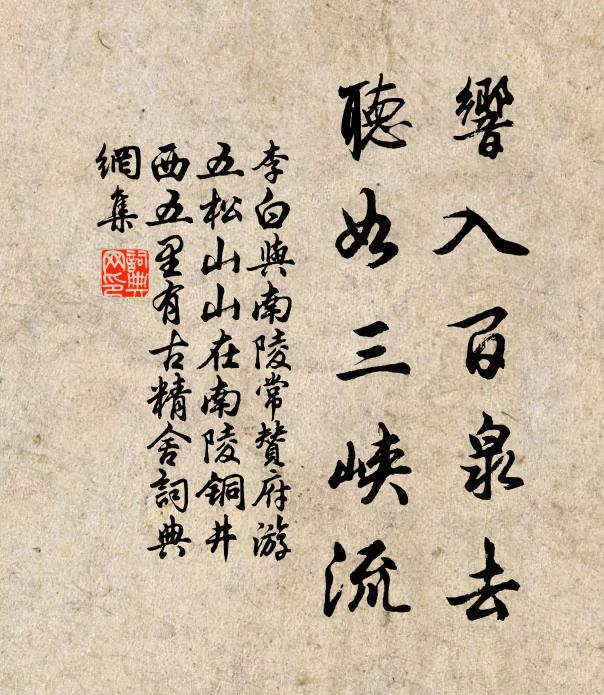 響入百泉去
聽如三峽流
李白與南陵常贊府游
五松山山在南陵銅井
西五里有古精舍詞典
網集
詞典
网印